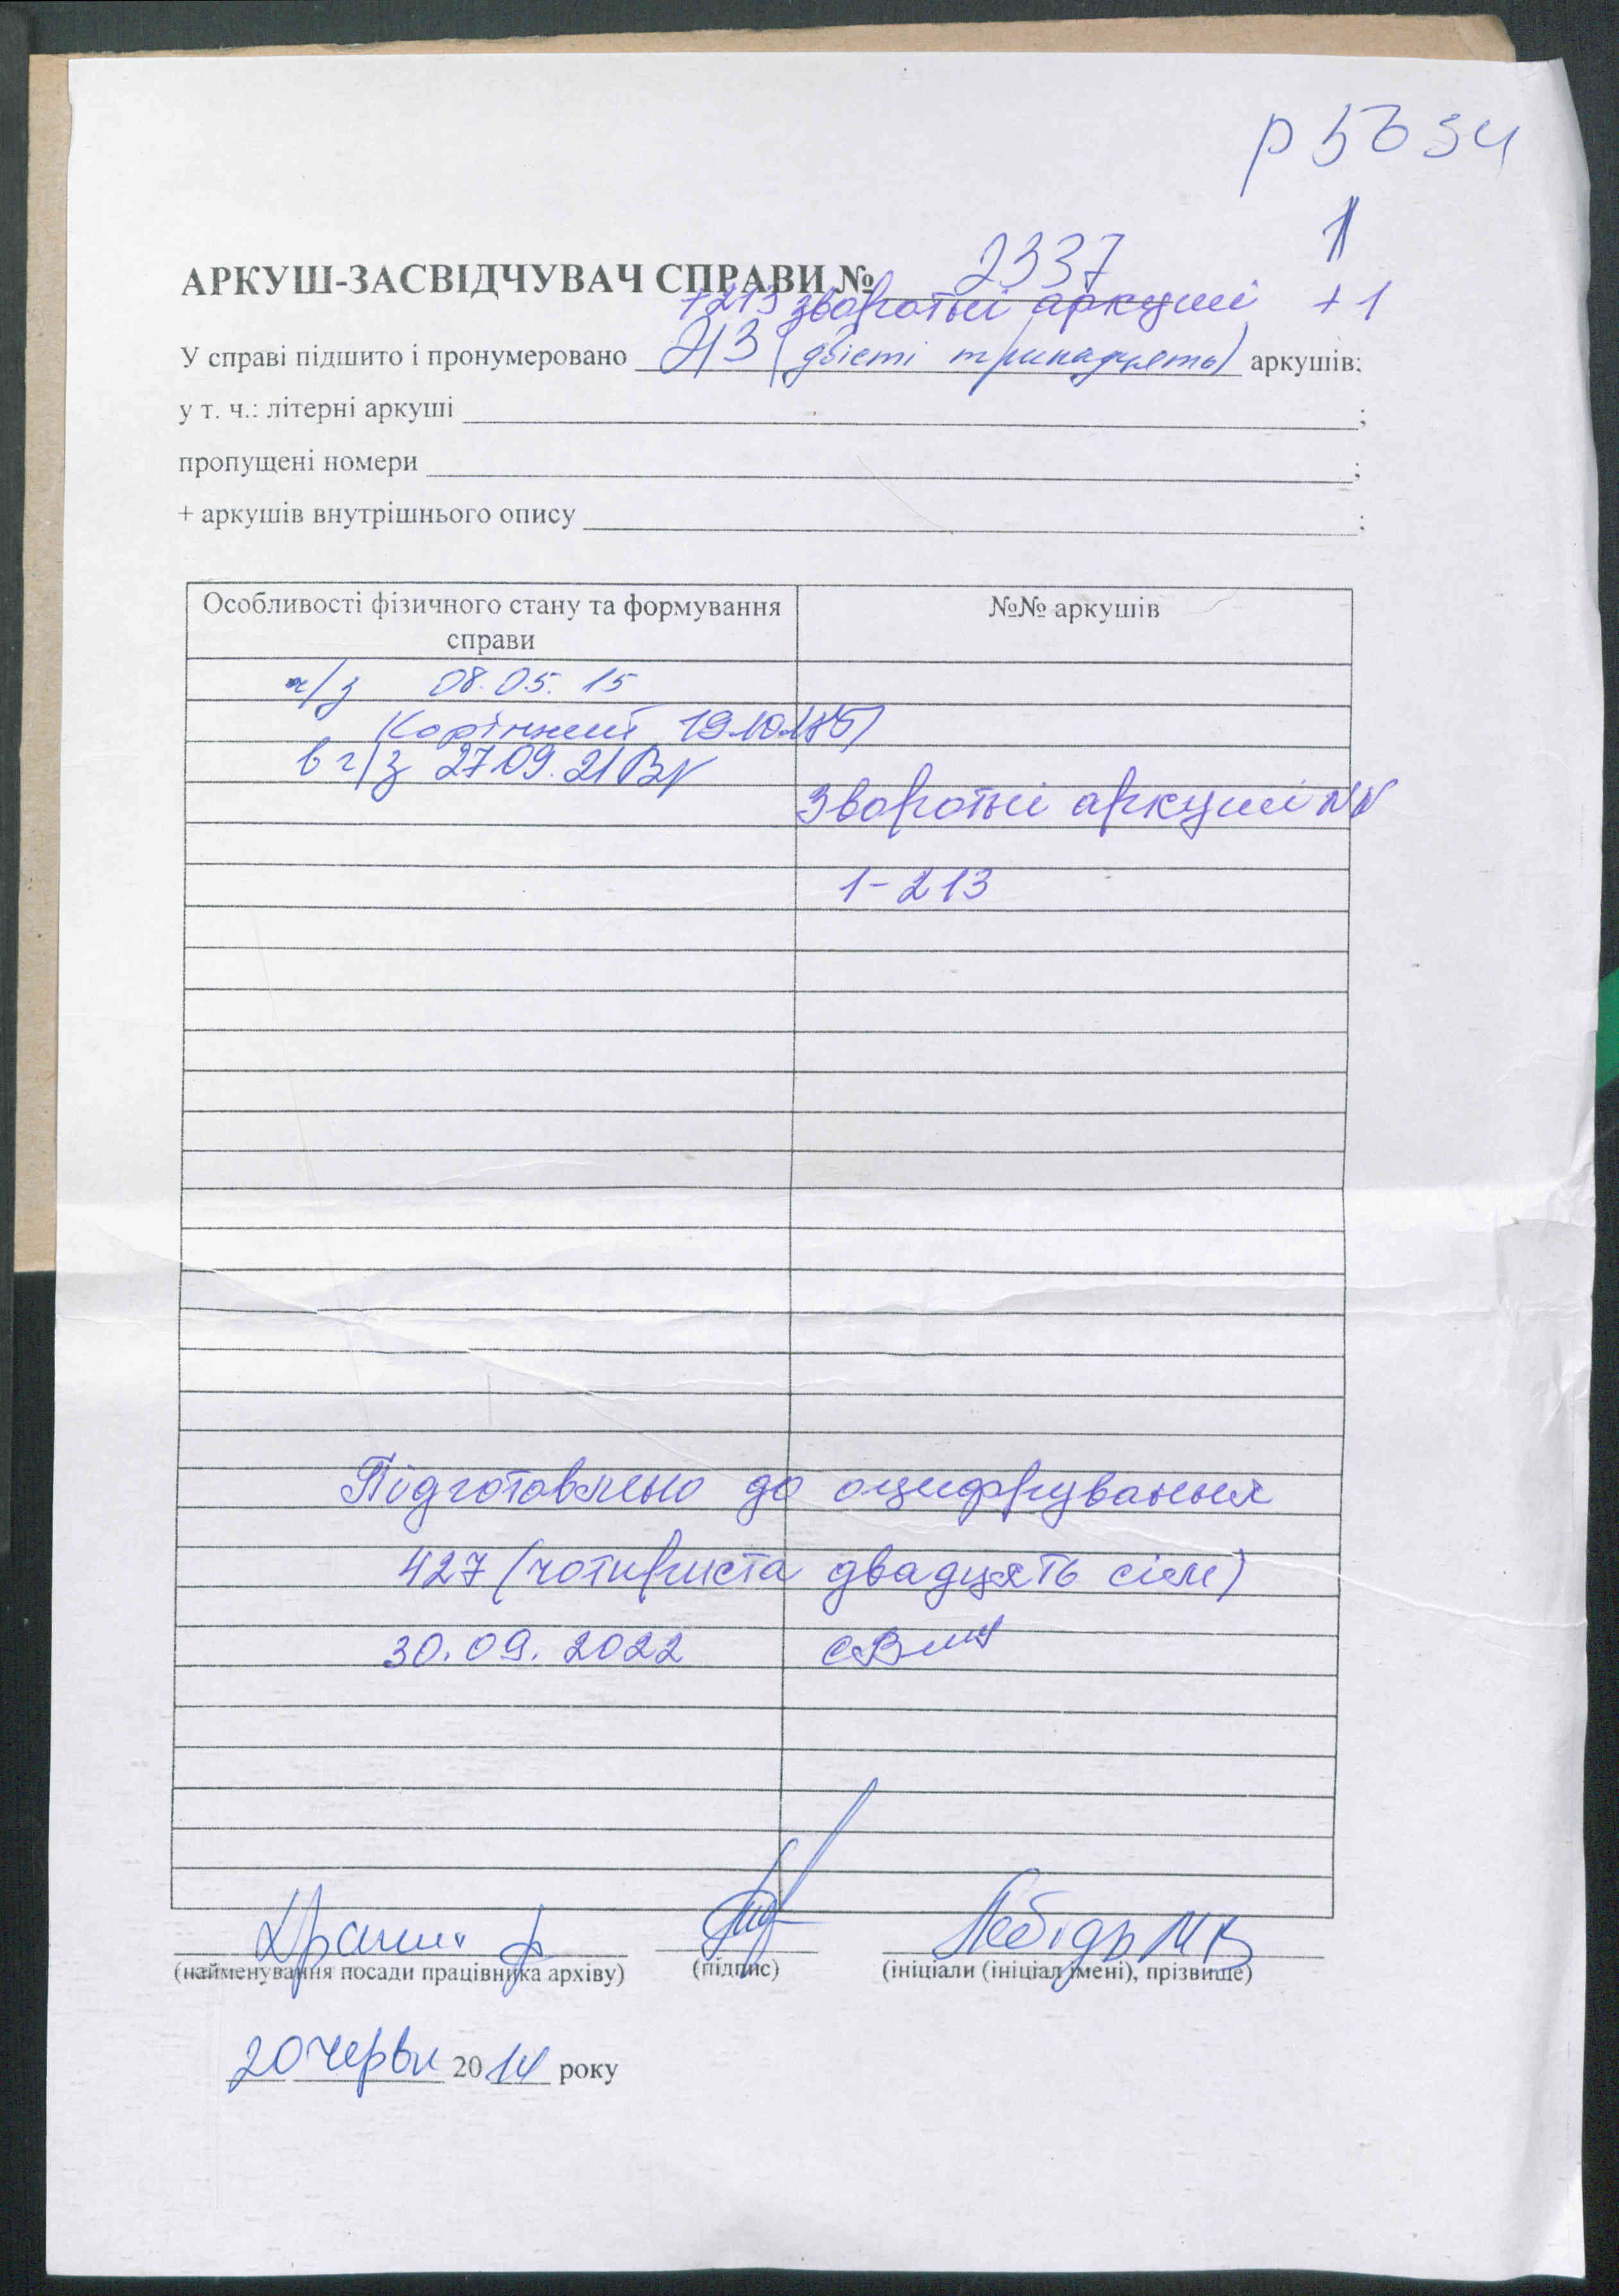 р 5634
1
АРКУШ-ЗАСВІДЧУВАЧ СПРАВИ № 2337
+213 зворотні аркуші + 1
У справі підшито і пронумеровано 213 (двісті тринадцять) аркушів;
у т. ч.: літерні аркуші ;
пропущені номери ;
+ аркушів внутрішнього опису ;
Особливості фізичного стану та формування справи
№№ аркушів
ч/з 08.05.15
в ч/з 27.09.21
Зворотні аркуші NN
1-213
Підготовлено до оцифрування
427 (чотириста двадцять сім)
30.09.2022
(найменування посади працівника архіву)
(підпис)
Лебідь М В
(ініціали (ініціал імені), прізвище)
20 червн 2014 року